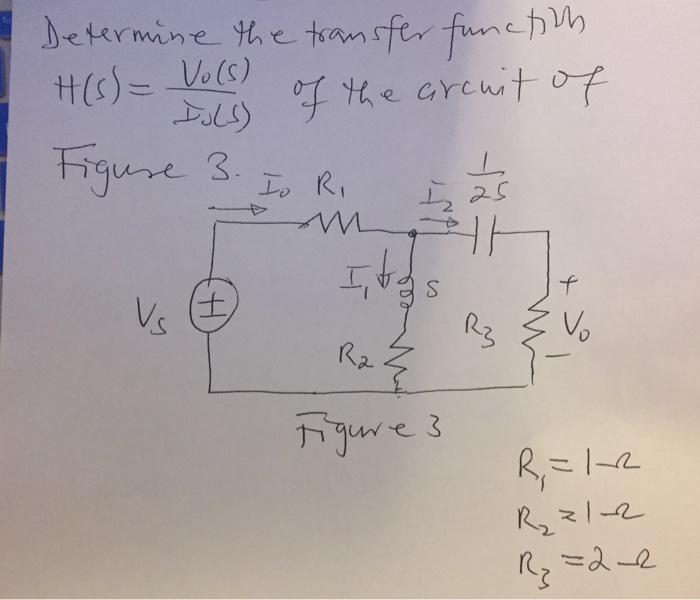 Determine the transfer function
H(s) = Vo(s) / Io(s) of the circuit of
Figure 3.
Io R1 I2 1/2s
I1 s
Vs + R2 R3 + Vo −
Figure 3
R1 = 1-Ω
R2 = 1-Ω
R3 = 2-Ω